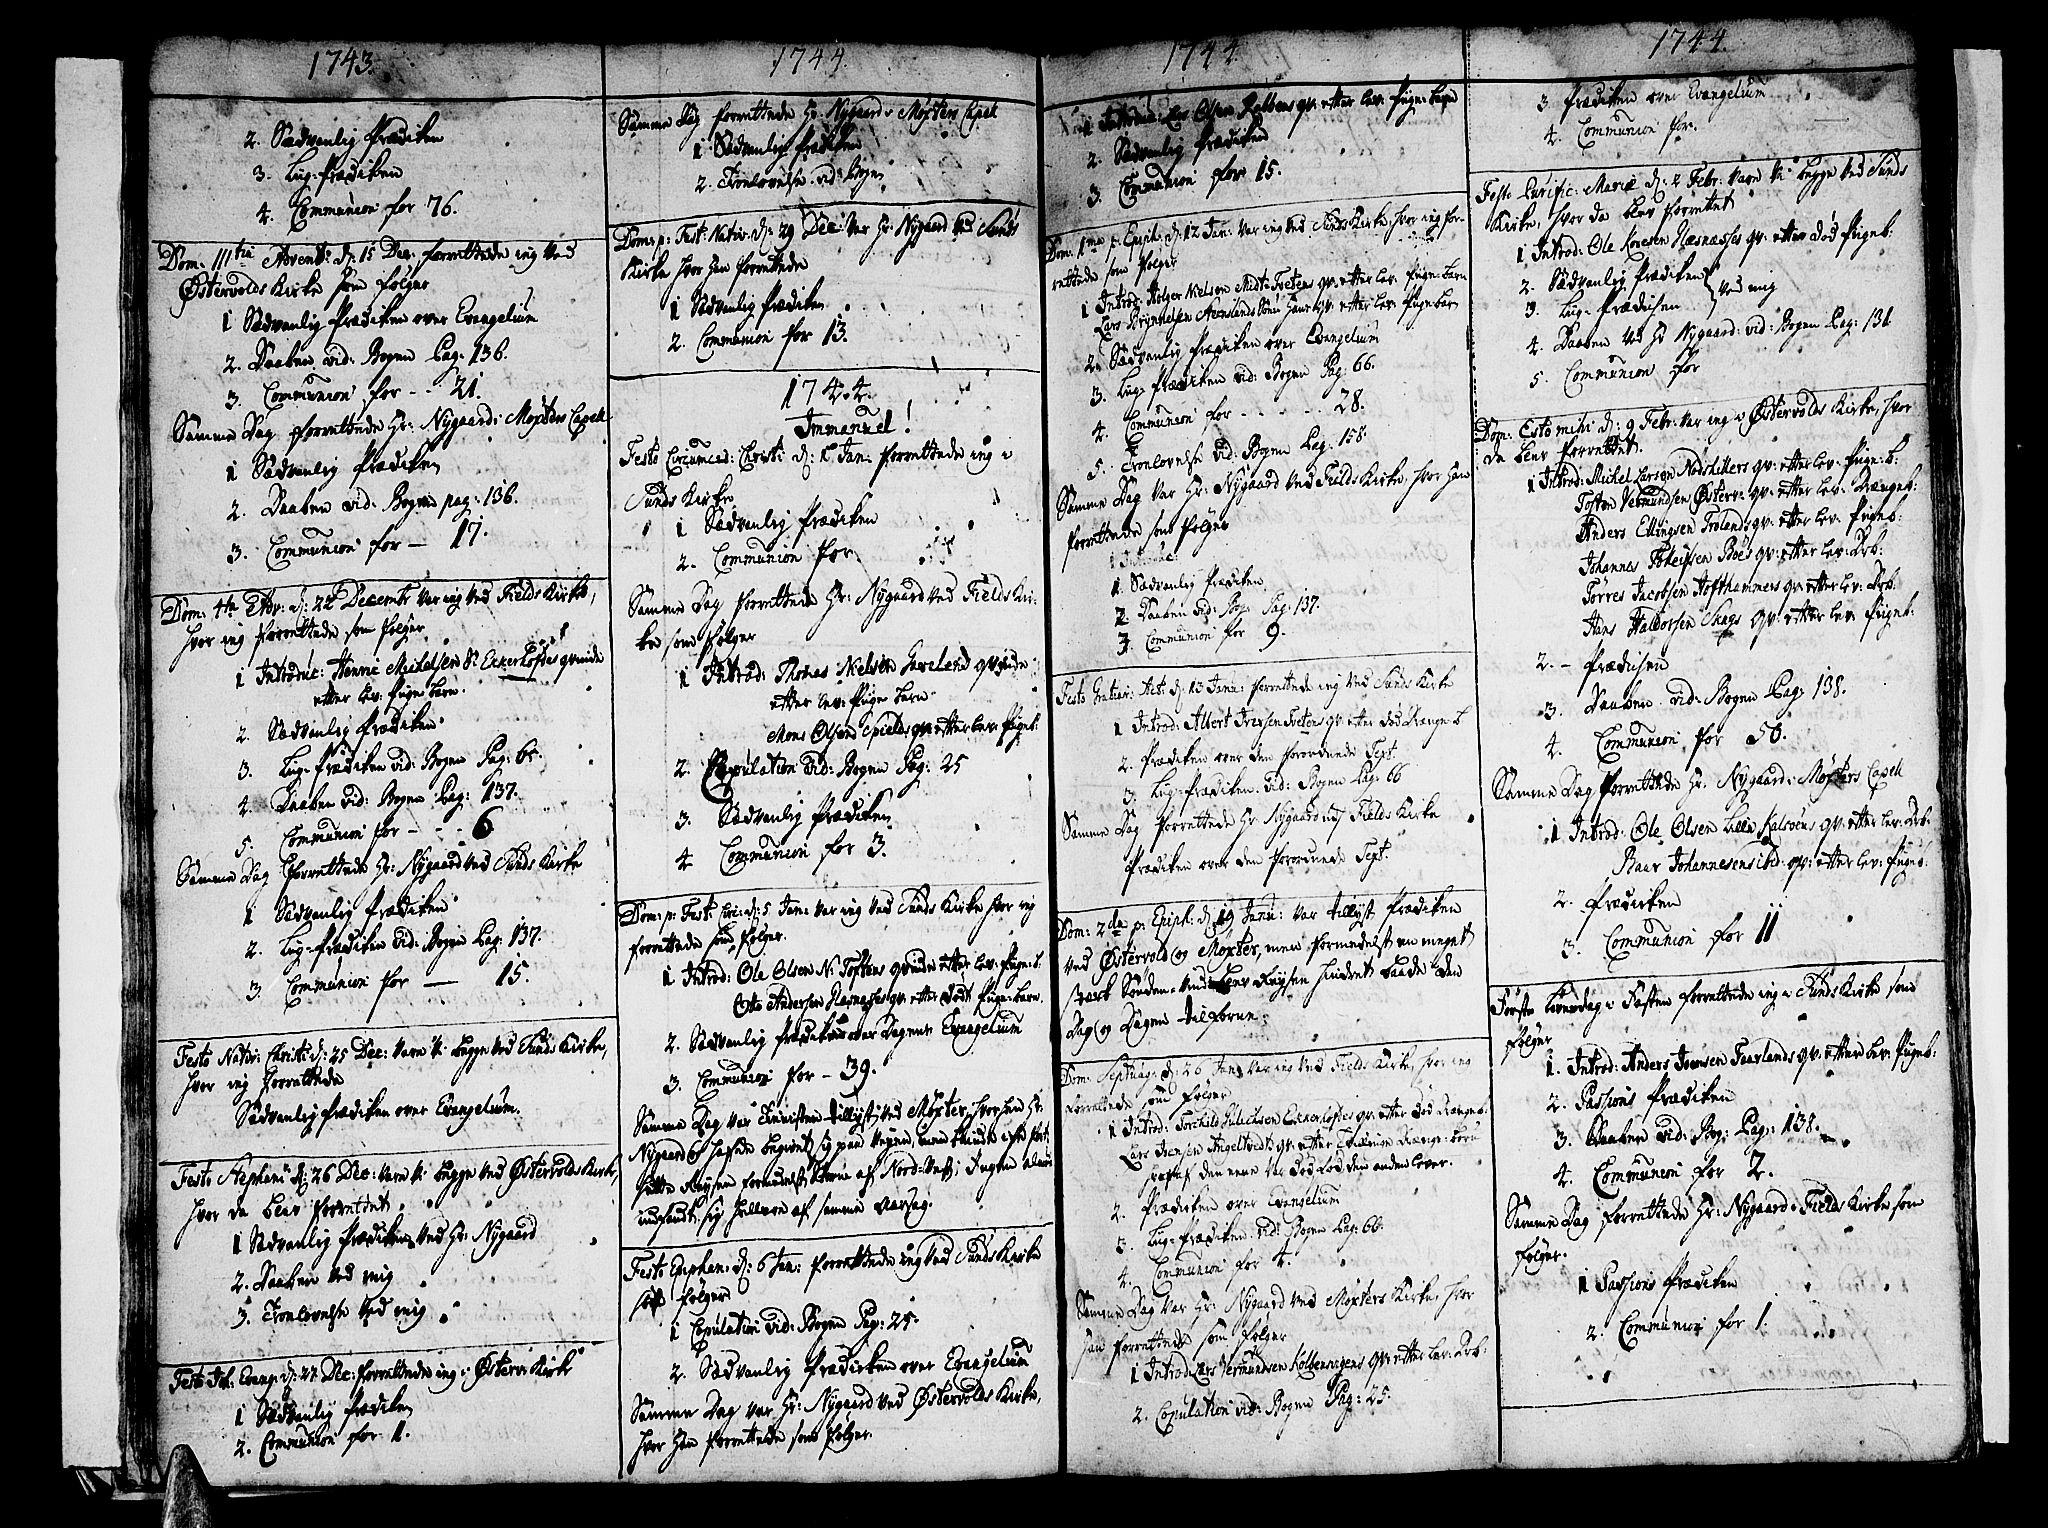 1743.
2. Sædvanlig Prædiken
3. Liig-Prædiken
4. Communion for 76.
Dom: IIItia Advent: d: 15 Dec: forrettede ieg ved
Østervolds Kirke som følger
1 Sædvanlig Prædiken over Evangelium
2. Daaben vid: Bogen Pag: 136.
3. Communion for - - 21.
Samme Dag forrettede Hr: Nygaard i Møxters Capell
1 Sædvanlig Prædiken
2. Daaben vid: Bogen pag: 136.
3. Communion for — 17.
Dom: 4ta Adv: d: 22 Decembr var ieg ved Fields Kirke,
hvor ieg forrettede som følger
1 Introduc: Michelsen qvinde
etter lev: Pige barn.
2. Sædvanlig Prædiken
3. Liig-Prædiken vid: Bogen Pag:
4. Daaben vid: Bogen Pag: 137.
5. Communion for - - - 6
Samme Dag forrettede Hr: Nygaard ved Sunds Kirke
1 Sædvanlig Prædiken
2. Liig-Prædiken vid: Bogen Pag: 137.
3. Communion for — 15.
Festo Nativ: Christi d: 25 Dec: vare vi begge ved Sunds Kirke,
hvor ieg forrettede
Sædvanlig Prædiken over Evangelium.
Festo Stephani d: 26 Dec: vare vi begge ved Østervolds Kirke,
hvor da blev forrettet
1 Sædvanlig Prædiken ved Hr: Nygaard
2. Daaben ved mig
3. Troelovelse ved mig
Festo Joh: Evang: d: 27 Dec: forrettede ieg i Østerv: Kirke
1 Sædvanlig Prædiken
2. Communion for 1.
1744.
Samme Dag forrettede Hr: Nygaard i Møxters Capel
1 Sædvanlig Prædiken
2. Troelovelse vid: Bogen
Dom: p: Fest: Nativ: d: 29 Dec: var Hr: Nygaard ved Sunds
Kirke hvor han forrettede
1 Sædvanlig Prædiken
2. Communion for 13.
1744.
Immanuel!
Festo Circumcis: Christi d: 1 Jan: forrettede ieg i
Sunds Kirke
1 Sædvanlig Prædiken
2. Communion for
Samme Dag forrettede Hr: Nygaard ved Fields Kir-
ke som følger
1 Introd: Thomas Nielsen qvinde
etter lev: Pige barn
Mons Olsen qv: etter lev: Pigeb:
2. Copulation vid: Bogen Pag: 25
3. Sædvanlig Prædiken
4. Communion for 3.
Dom: p: Fest: Circ: d: 5 Jan: var ieg ved Sunds Kirke hvor ieg
forrettede som følger.
1 Introd: Ole Olsen N: Toftens qvinde etter lev: Pige: b:
Otte Andersen qv: etter Død Pige: barn.
2. Sædvanlig Prædiken over Dagens Evangelium
3. Communion for - 39.
Samme Dag var Tienisten tillyst ved Møxter, hvorhen Hr:
Nygaard og hafde begivet sig paa Veyen, men kunde ikke fort
sette Reysen formedelst Storm af Nord-Vest; Ingen Almue
indfandt sig hellere af samme Aarsag.
Festo Epiphan: d: 6 Jan: forrettede ieg ved Sunds Kirke
som følger
1 Copulation vid: Bogen Pag: 25.
2. Sædvanlig Prædiken over Evangelium
Samme Dag var Hr: Nygaard ved Østervolds Kirke,
hvor han forrettede som følger.
1744.
1 Introduc: Olsen qv: etter lev: Pige: barn
2. Sædvanlig Prædiken
3. Communion for 15.
Dom: 1ma p: Epiph: d: 12 Jan: var ieg ved Sunds Kirke, hvor ieg for-
rettede som følger
1 Introd: Holger Nielsen Midt-Tvetens qv: etter lev: Pige: barn
Lars Brynnelsen qv: etter lev: Pigebarn
2. Sædvanlig Prædiken over Evangelium
3. Liig-Prædiken vid: Bogen Pag: 66.
4. Communion for - - - - 28.
5. Troelovelse vid: Bogen Pag: 158.
Samme Dag var Hr: Nygaard ved Fields Kirke, hvor han
forrettede som følger
1. Sædvanlig Prædiken
2. Daaben vid: Bog: Pag: 137.
3. Communion for 9.
Festo Gratiar: Act: d: 13 Janu: forrettede ieg ved Sunds Kirke
1 Introd: Albert Iversen Tvetens qv: etter død Drænge b
2. Prædiken over den forordnede Text.
3. Liig-Prædiken vid: Bogen Pag: 66
Samme Dag forrettede Hr: Nygaard ved Fields Kirke
Prædiken over den forordnede Text.
Dom: 2da p: Epiph: d: 19 Janu: var tillyst Prædiken
ved Østervold og Møxter, men formedelst en meget
stærk Sønden-Vind blev Reysen hindret baade den
Dag og Dagen tilforne.
Dom: Septuag: d: 26 Jan: var ieg ved Fields Kirke, hvor ieg
forrettede som følger
1 Introd: Torchild qv: etter død Drængeb:
Lars Iversen qv: etter Tvilling Drænge-børn
hvoraf den eene var død fød den anden lever.
2. Prædiken over Evangelium
3. Liig-Prædiken vid: Bogen Pag: 66.
4. Communion for 4.
Samme Dag var Hr: Nygaard ved Møxters Kirke, hvor
han forrettede som følger
1 Introd: Lars Vermundsen qv: etter lev: Drb:
2. Copulation vid: Bogen Pag: 25.
1744.
3. Prædiken over Evangelium
4. Communion for.
Festo Purific: Mariæ d: 2 Febr: vare vi begge ved Sunds
Kirke, hvor da blev forrettet
1 Introd: Ole qv: etter død Pigeb:
2. Sædvanlig Prædiken
3. Liig-Prædiken } ved mig
4. Daaben ved Hr Nygaard: vid: Bogen Pag: 138
5. Communion for
Dom: Esto mihi d: 9 Febr: var ieg i Østervolds Kirke, hvor
da blev forrettet.
1 Introd: Mickel Larsen qv: etter lev: Pige: b:
Tosten Vermundsen Østerv: qv: etter lev: Drængeb:
Anders Ellingsen Trolands qv: etter lev: Pigeb:
Johannes Boes qv: etter lev: Drb:
Torres Jacobsen qv: etter lev: Drb:
Hans Haldorsen Skags qv: etter lev: Pigeb:
2. - Prædiken
3. Daaben vid: Bogen Pag: 138.
4. Communion for 56.
Samme Dag forrettede Hr: Nygaard i Møxters Capell
1 Introd: Ole Olsen Lille Kalsøens qv: etter lev: Drb:
Baar Johannesens ibid: qv: etter lev: Pigeb:
2. Prædiken
3. Communion for 11
Første Torsdag i Fasten forrettede ieg i Sunds Kirke som
følger
1. Introd: Anders qv: etter lev: Pigeb:
2. Passions Prædiken
3. Daaben vid: Bog: Pag: 138.
4. Communion for 2.
Samme Dag forrettede Hr: Nygaard i Fields Kirke som
følger.
1 Passions Prædiken
2. Communion for 1.